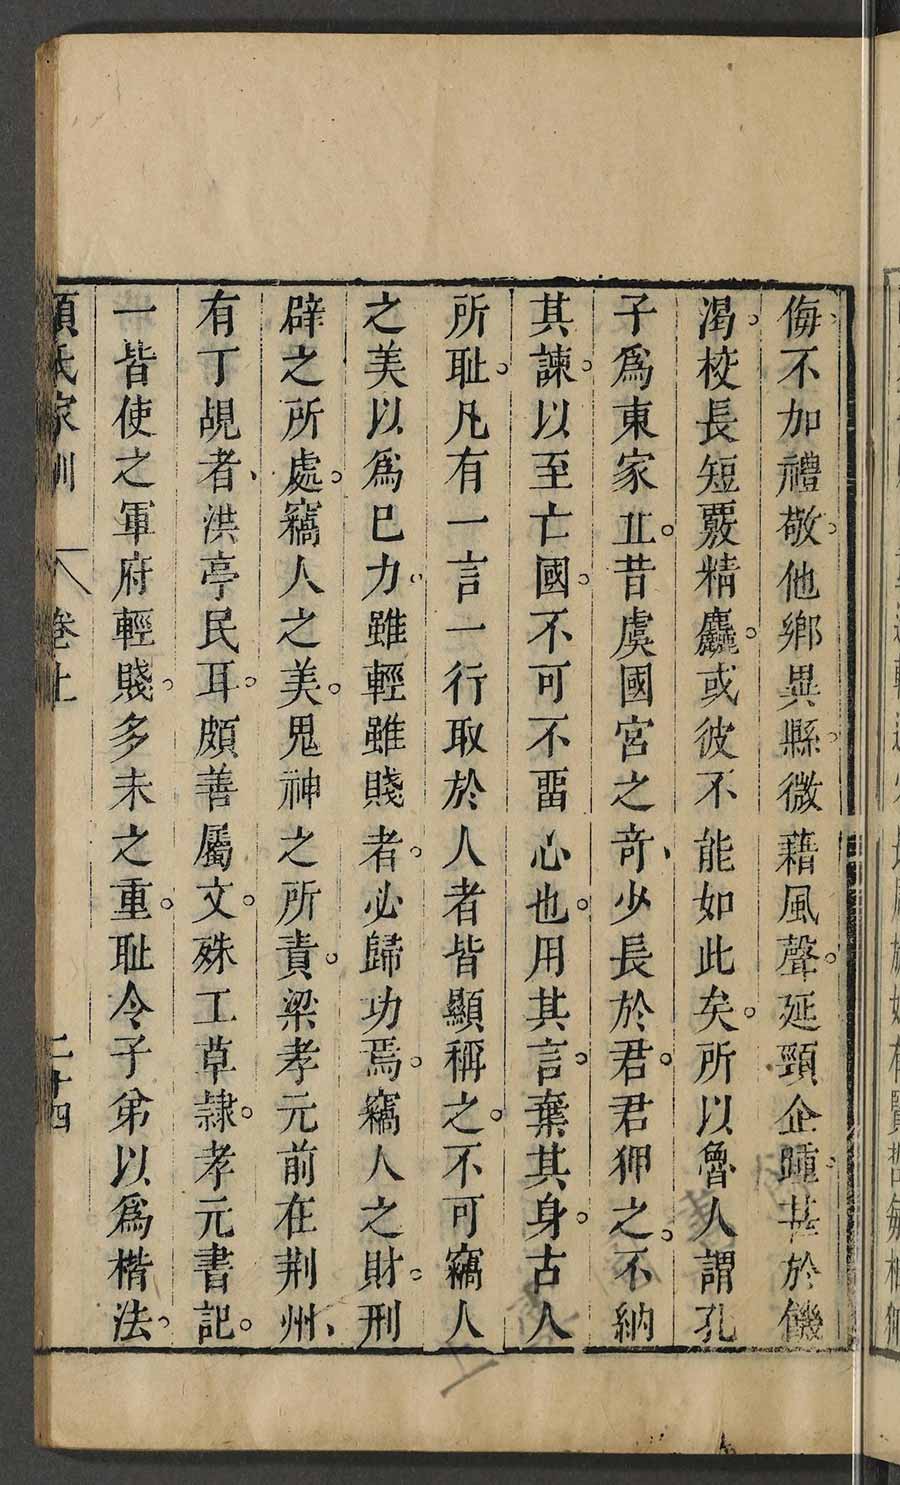 侮不加禮敬他鄉異縣微藉風聲延頸企踵甚於饑
渴校長短覈精麤或彼不能如此矣所以魯人謂孔
子爲東家丘昔虞國宮之奇少長於君君狎之不納
其諫以至亡國不可不畱心也用其言棄其身古人
所耻凡有一言一行取於人者皆顯稱之不可竊人
之美以爲己力雖輕雖賤者必歸功焉竊人之財刑
辟之所處竊人之美鬼神之所責梁孝元前在荆州
有丁覘者洪亭民耳頗善屬文殊工草隷孝元書記
一皆使之軍府輕賤多未之重耻令子弟以爲楷法
顏氏家訓 卷上 二十四